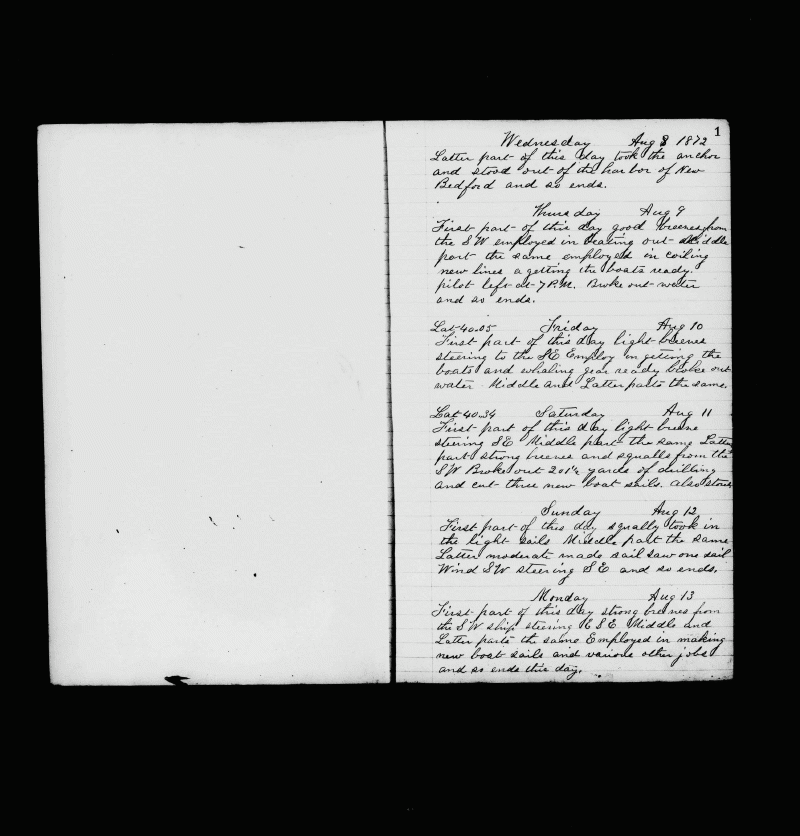 1
Wednesday Aug 8 1872
Latter part of this day took the anchor
and stood out of the harbor of New
Bedford and so ends.
Thursday Aug 9
First part of this day good breezes from
the SW employed in beating out Middle
part the same employed in coiling
new lines a getting the boats ready.
pilot left at 7 P.M. Broke out water
and so ends.
Lat 40.05 Friday Aug 10
First part of this day light breezes
steering to the SE Employ in getting the
boats and whaling gear ready broke out
water Middle and Latter parts the same.
Lat 40.34 Saturday Aug 11
First part of this day light breeze
steering SE Middle part the same Latter
part strong breezes and squalls from the
SW Broke out 201½ yards of drilling
and cut three new boat sails. also stores
Sunday Aug 12
First part of this day squally took in
the light sails Middle part the same
Latter moderate made sail saw one sail
Wind SW steering SE and so ends.
Monday Aug 13
First part of this day strong breezes from
the SW ship steering ESE Middle and
Latter parts the same Employed in making
new boat sails and various other jobs
and so ends this day.